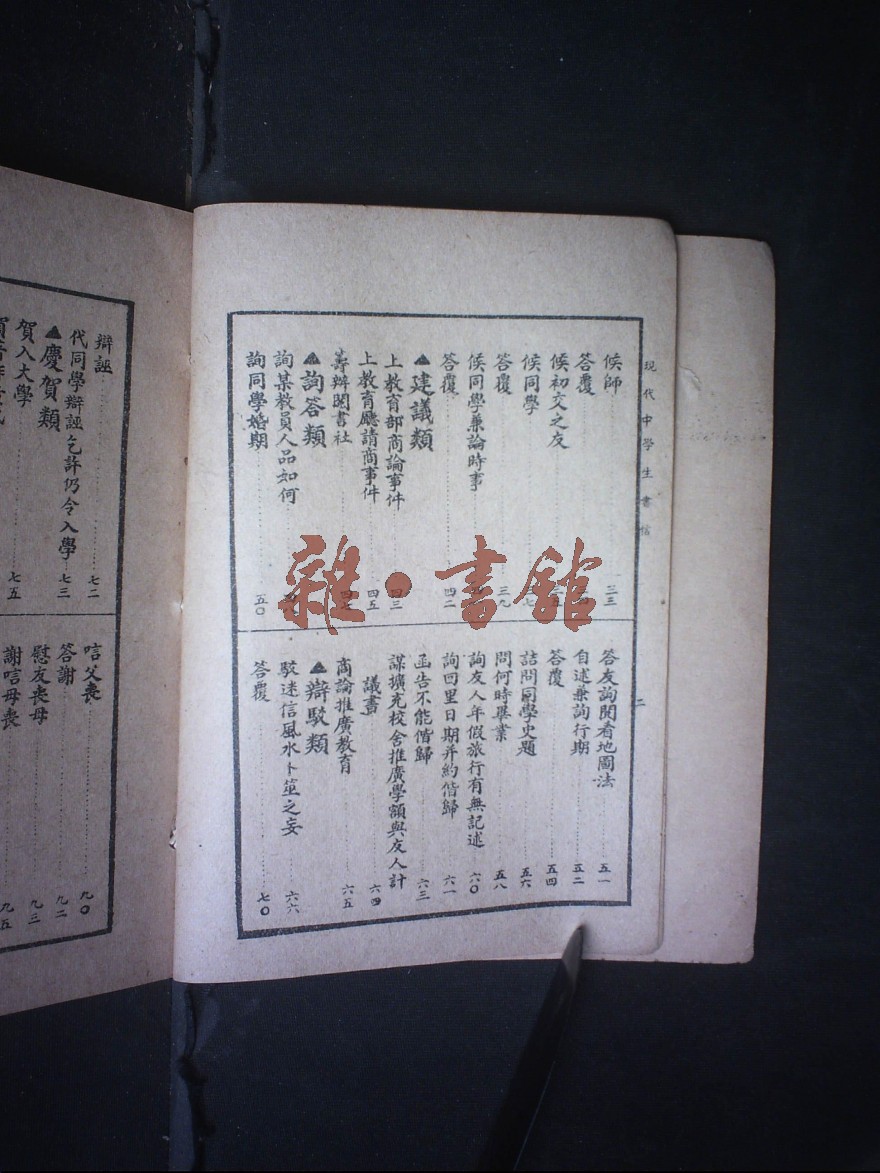 現代中學生書信
二
候師 三三
答覆
候初交之友
候同學
答覆 三九
候同學兼論時事
答覆 四二
▲建議類
上教育部商論事件 四三
上教育廳請商事件 四五
籌辦閱書社
▲詢答類
詢某教員人品如何
詢同學婚期 五〇
答友詢閱看地圖法 五一
自述兼詢行期 五二
答覆 五四
詰問同學史題 五六
問何時畢業 五八
詢友人年假旅行有無記述 六〇
詢回里日期并約偕歸 六一
函告不能偕歸 六三
謀擴充校舍推廣學額與友人計
議書 六四
商論推廣教育 六五
▲辯駁類
駁迷信風水卜筮之妄 六六
答覆 七〇
辯誣 七二
代同學辯誣乞許仍令入學 七三
▲慶賀類
賀入大學 七五
唁父喪 九〇
答謝 九二
慰友喪母 九三
謝唁母喪 九五
雜·書館